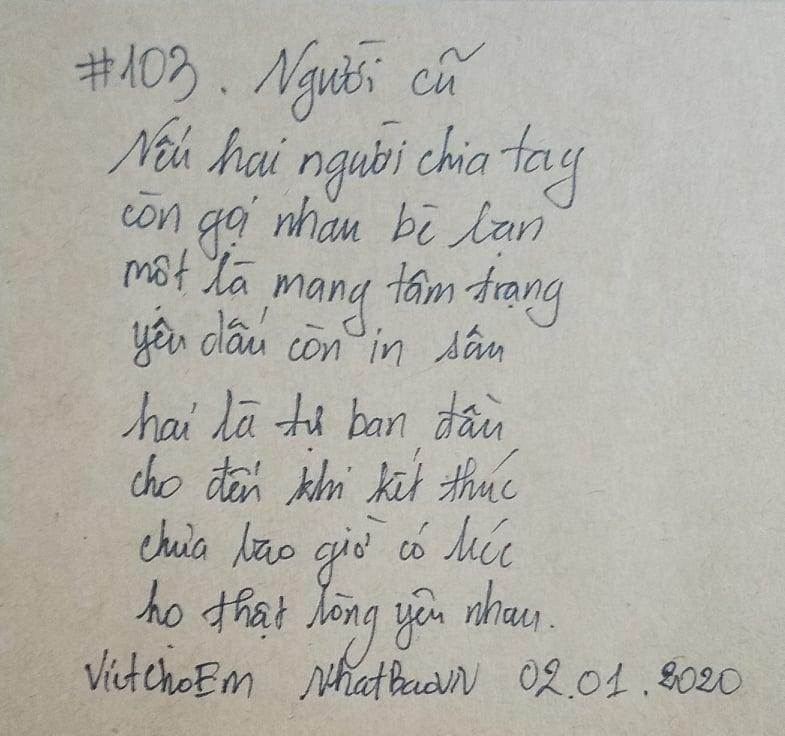 #103. Người cũ
Nếu hai người chia tay
còn gọi nhau bè bạn
một là mang tâm trạng
yêu dấu còn in sâu
hai là từ ban đầu
cho đến khi kết thúc
chưa bao giờ có lúc
họ thật lòng yêu nhau.
ViếtchoEm NhatBaoVN 02.01.2020